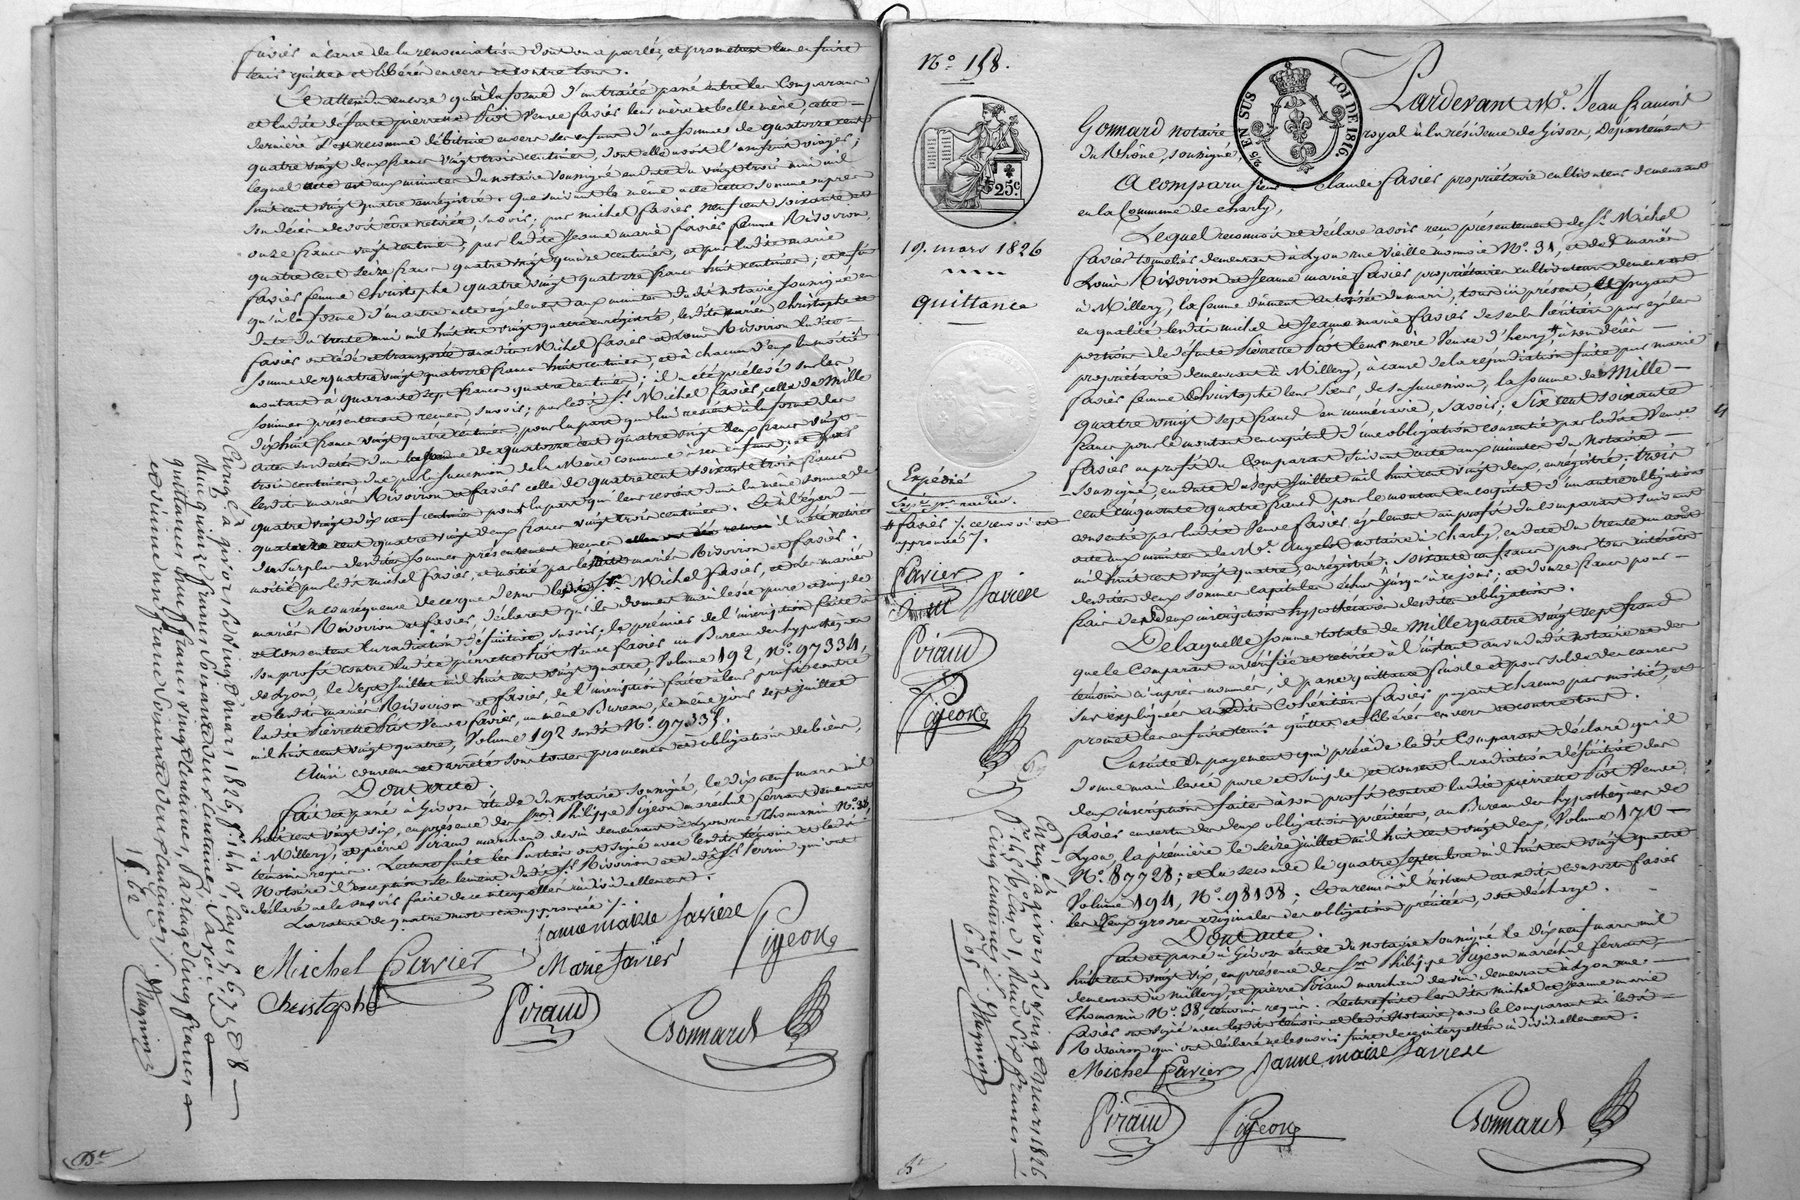 faviés à cause de la renonciation dont on a parlé, et promettent l'en faire
tenir quittes et libérés envers et contre tous.
Et attendu encore qu'à la forme d'un traité passé entre les Comparans
et ladite défunte pierrette Piot Veuve faviés leur mère et belle mère, cette
dernière s'est reconnue débitrice envers ses enfans d'une somme de quatorze cent
quatre vingt deux francs vingt trois centimes, dont elle avoit l'usufruit viager,
lequel acte est aux minutes du notaire soussigné en date du vingt trois mai mil
huit cent vingt quatre enregistré. Que suivant le même acte cette somme
onze francs vingt centimes; par ladite Jeanne marie faviés femme Rivoiron,
quatre cent seize francs quatre vingt quinze centimes, et par ladite marie
faviés femme Christophe quatre vingt quatorze francs huit centimes; et enfin
qu'à la forme d'un autre acte également aux minutes dudit notaire soussigné en
date du trente mai mil huit cent vingt quatre enregistré, lesdits mariés Christophe et
faviés ont cédé et transporté audit Michel faviés et Louis Rivoiron ladite
somme de quatre vingt quatorze francs huit centimes, et à chacun d'eux la moitié
montant à quarante sept francs quatre centimes; il a été prélevé sur les
sommes présentement réçues savoir; par le dit Sr. Michel faviés, celle de Mille
dixhuit francs vingt quatre centimes pour la part qui lui revient à la forme des
actes susdatés d'un somme de quatorze cent quatre vingt deux francs vingt
trois centimes due par la succession de la Mère commune à ses enfans, et par
lesdits mariés Rivoiron et faviés celle de quatre cent soixante trois francs
quatre vingt dix neuf centimes pour la part qui leur revient dans la même somme de
quatorze cent quatre vingt deux francs vingt trois centimes. Et à l'égard
du surplus desdites sommes présentement reçues il a été retiré
moitié par ledit michel faviés, et moitié par lesdits mariés Rivoiron et faviés.
En conséquence de ce que dessus ledit Sr. Michel faviés, et les mariés
mariés Rivoiron et faviés, déclarent qu'ils donnent main levée pure et simple
et consentent la radiation définitive, savoir; le premier de l'inscription faite à
son profit contre ladite pierrette Piot Veuve faviés au Bureau des hypothèques
de Lyon, le sept juillet mil huit cent vingt quatre, Volume 192, N°. 97334,
et lesdits mariés Rivoiron et faviés, de l'inscription faite à leur profit contre
ladite Pierrette Piot Veuve faviés, au même Bureau, le même jour sept juillet
mil huit cent vingt quatre, Volume 192 susdit N°. 97335.
Ainsi convenu et arrêté sous toutes promesses et obligations de biens,
Dont acte.
Fait et passé à Givors étude du notaire soussigné, le dix neuf mars mil
huit cent vingt six, en présence des Srs. Philippe Pigeon maréchal ferrant demeurant
à Millery, et pierre Piraud marchand de vin demeurant à Lyon rue Thomassin N°. 38,
témoins requis. Lecture faite les Parties ont signé avec lesdits témoins et ledit
Notaire à l'exception seulement dudit Sr. Rivoiron et dudit Sr. Perrin qui ont
déclaré ne le savoir faire de ce interpellés individuellement.
La rature de quatre mots est approuvée.
Jeanne marie faviere
Pigeon
Michel Favier
Marie favier
Christophe
Piraud
Gonnard
Enregé. à givors le vingt mars 1826, f° 144 V°, Cases 5, 6, 7 et 8
Reçu quinze francs soixante deux centimes, Savoir
quittances neuf francs vingt centimes, Partage cinq francs
et dixième un franc quarante deux centimes.
15.62
Magnin
N°. 158.
25c
25 EN SUS
LOI DE 1816.
19. mars 1826
Quittance
Expédié
# faviés /. ce renvoi est
approuvé /.
Favier
Favière
Piraud
Pigeon
Enregé. à givors le vingt mars 1826
f° 145 R° Case 1, Reçu six francs
cinq centimes.
6.05
Magnin
Pardevant Me. Jean francois
Gonnard notaire royal à la résidence de Givors, Département
du Rhône, soussigné
A comparu sieur Claude faviés propriétaire cultivateur demeurant
en la Commune de Charly,
Lequel reconnoit et déclare avoir reçu présentement de Sr. Michel
faviés tonnelier demeurant à Lyon rue Vieille monnoie N°. 31, et des mariés
Louis Rivoiron et Jeanne marie faviés propriétaires cultivateurs demeurant
à Millery, la femme dûment autorisée du mari, tous ici présent et payant
en qualité lesdits michel et Jeanne marie faviés de seuls héritiers par égales
portions de défunte Pierrette Piot leur mère Veuve d'henry #, à son décès
propriétaire demeurant à Millery, à cause de la répudiation faite par marie
faviés femme Christophe leur sœur, de sa succession, la somme de Mille
quatre vingt sept francs en numéraire, savoir; Six cent soixante
francs pour le montant en capital d'une obligation consentie par ladite Veuve
faviés au profit du Comparant suivant acte aux minutes du Notaire
soussigné, en date du sept juillet mil huit cent vingt deux, enregistré; trois
cent cinquante quatre francs pour le montant en capital d'un autre obligation
consentie par ladite Veuve faviés également au profit du Comparant suivant
acte aux minutes de Me. Angelot notaire à Charly, en date du trente un août
mil huit cent vingt quatre, enregistré; soixante un francs pour tous intérêts
desdites deux sommes capitales échus jusqu'à ce jour; et douze francs pour
frais des deux inscriptions hypothécaires desdites obligations.
De laquelle somme totale de Mille quatre vingt sept francs
que le Comparant a vérifiée et retirée à l'instant au vu dudit notaire et des
témoins ci après nommés, il passe quittance finale et pour solde des causes
sus expliquées auxdits Cohéritiers faviés payant chacun par moitié, et
promet les en faire tenir quittes et libérés envers et contre tous.
Ensuite du payement qui précède le dit Comparant déclare qu'il
donne main levée pure et simple, et consent la radiation définitive des
deux inscriptions faites à son profit contre ladite pierrette Piot Veuve
faviés en vertu des deux obligations précitées, au Bureau des hypothèques de
Lyon, la première le seize juillet mil huit cent vingt deux, Volume 170
N°. 87728; et la seconde le quatre septembre mil huit cent vingt quatre
Volume 194, N°. 98138; et a remis à l'instant auxdits Consorts faviés
les deux grosses originales des obligations précitées, sous décharge.
Dont acte.
Fait et passé à Givors étude du notaire soussigné le dix neuf mars mil
huit cent vingt six, en présence des Srs. Philippe Pigeon maréchal ferrant
demeurant à Millery, et pierre Piraud marchand de vin demeurant à Lyon rue
Thomassin N°. 38, témoins requis. Lecture faite lesdits michel et Jeanne marie
faviés ont signé avec lesdits témoins et ledit Notaire, non le Comparant ni ledit
Rivoiron qui ont déclaré ne le savoir faire de ce interpellés individuellement.
Michel Favier Jeanne marie favière
Piraud
Pigeon
Gonnard